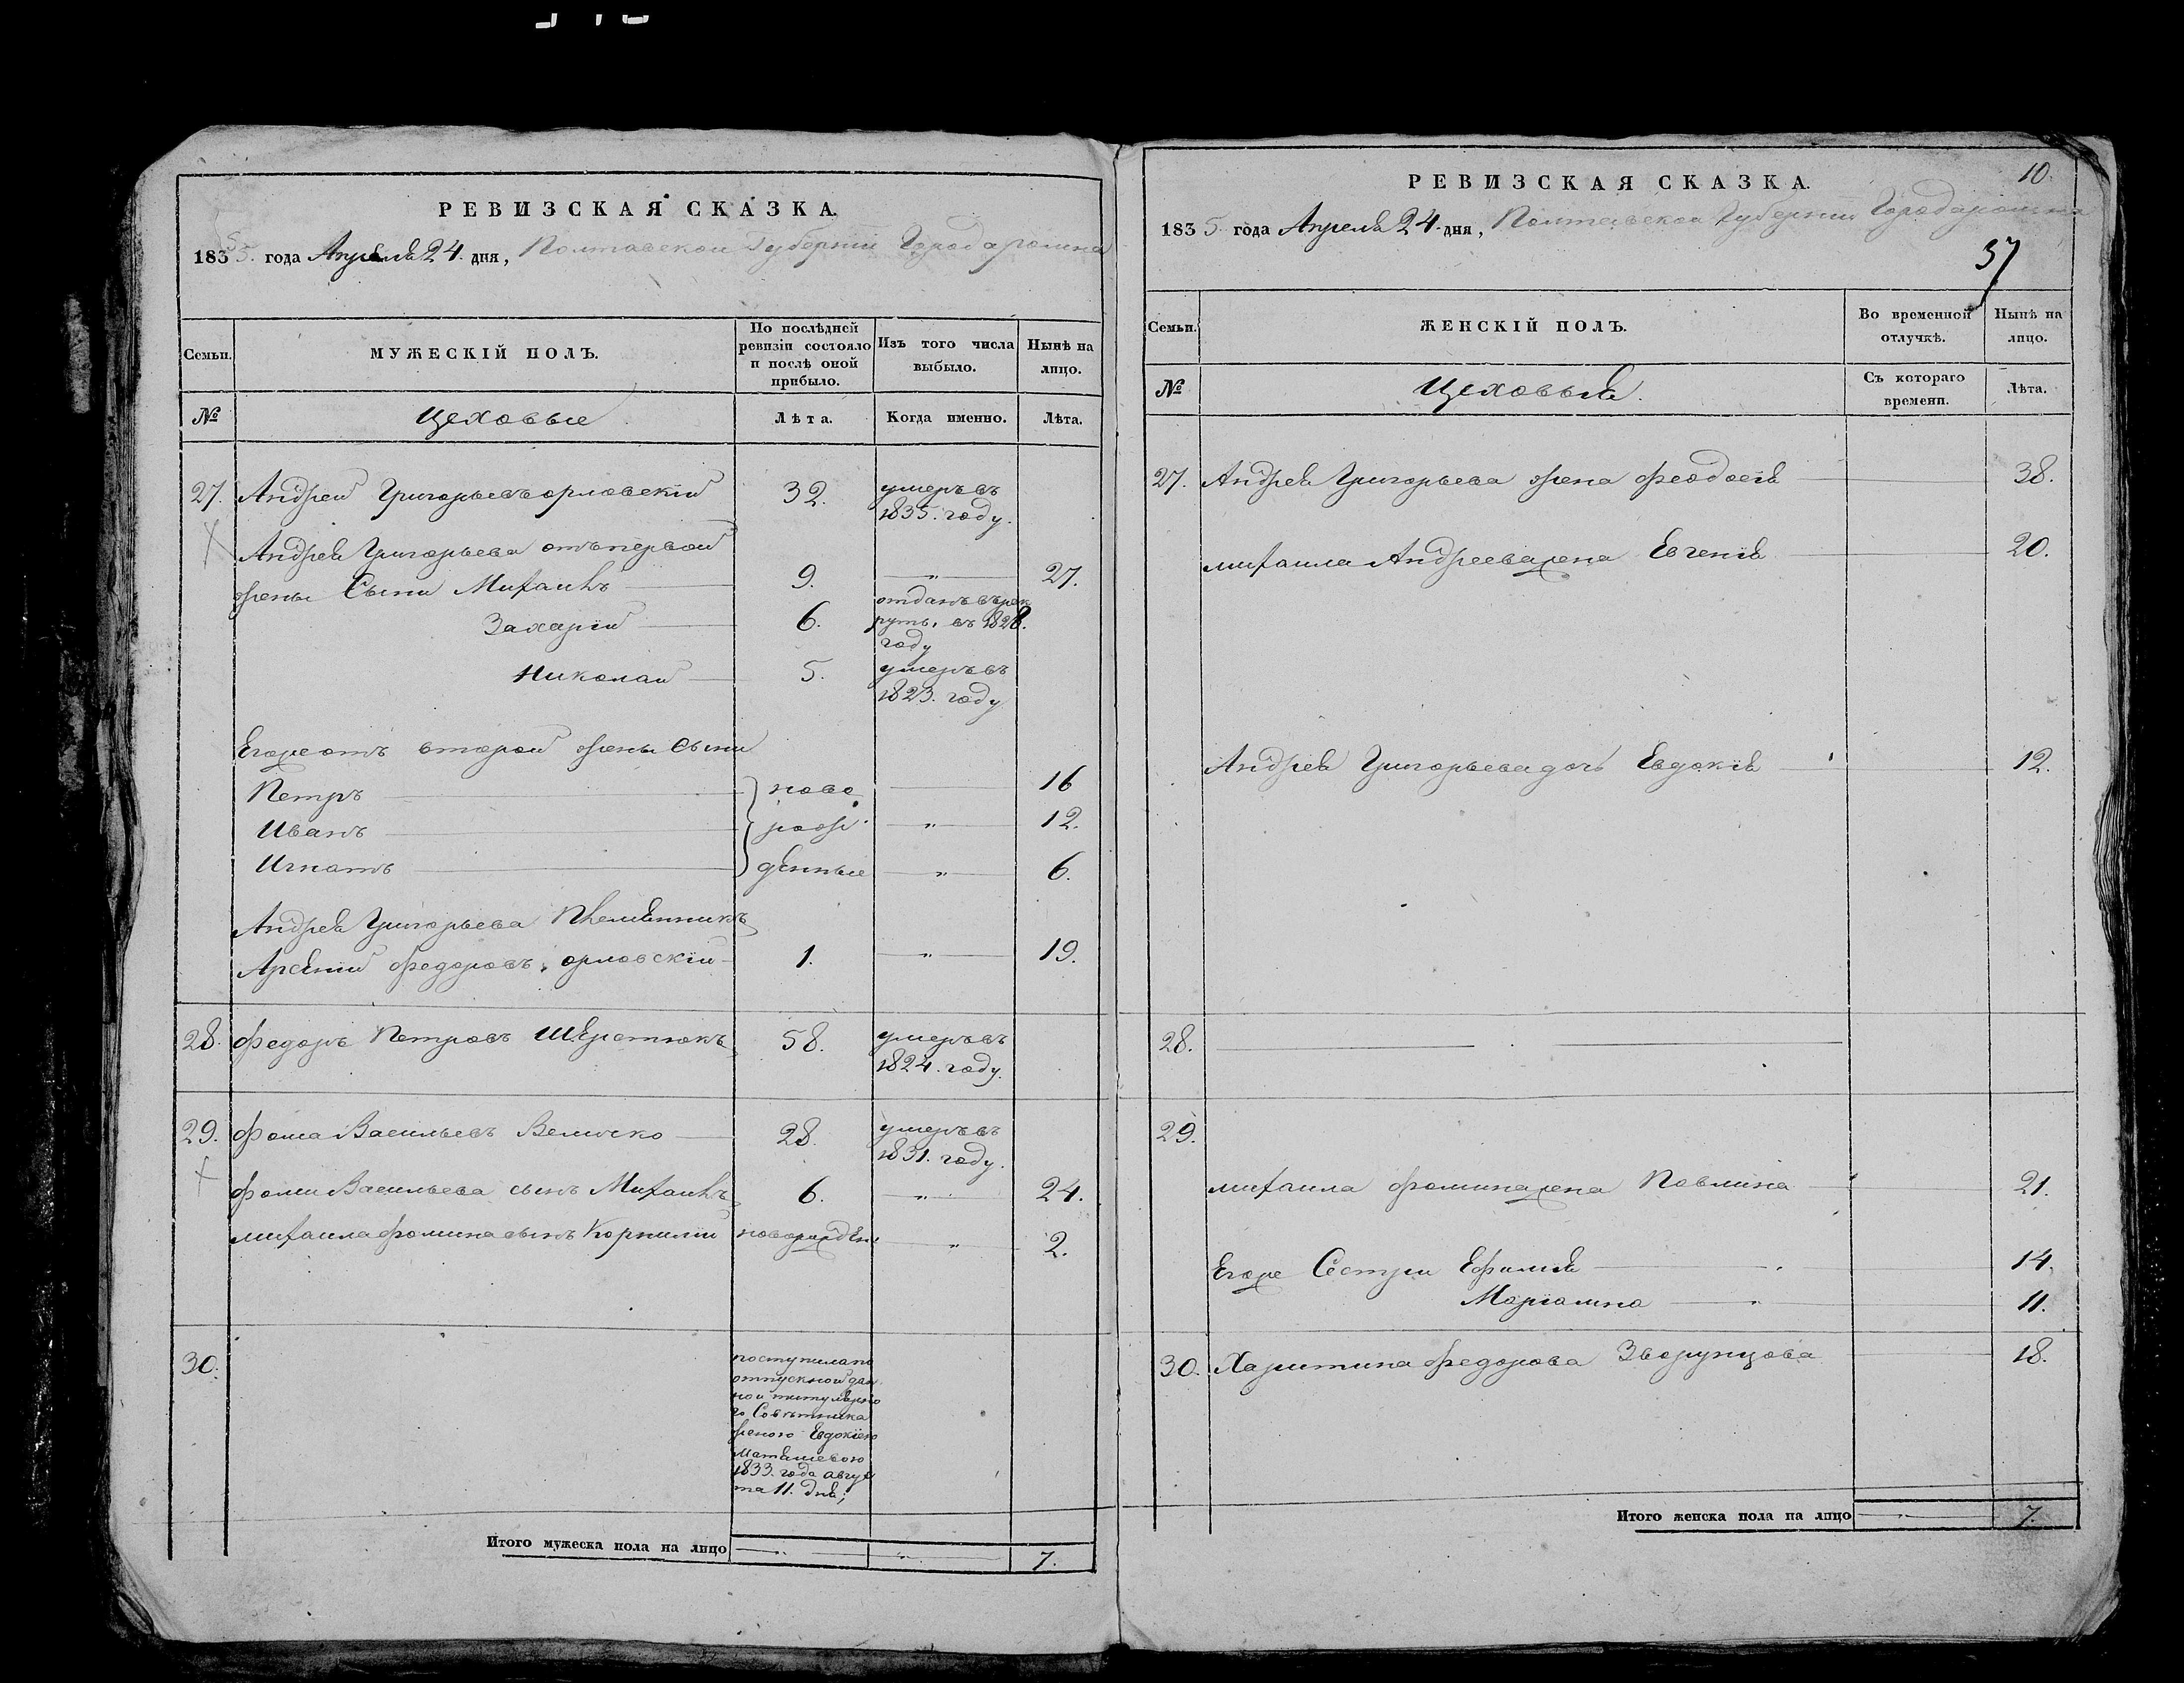 РЕВИЗСКАЯ СКАЗКА.
1835. года Апреля 24. дня, Полтавской Губернии Города ромна
Семьи.
МУЖЕСКІЙ ПОЛЪ.
По послѣдней ревизіи состояло и послѣ оной прибыло.
Изъ того числа выбыло.
Нынѣ на лицо.
№
Цеховые
Лѣта.
Когда именно.
Лѣта.
27. Андрей Григорьевъ орловскій 32. умеръ въ 1835. году.
Андрея Григорьева отъ первой
жены Сыни Михаилъ 9. „ 27.
Захарій 6. отданъ въ рек
руты, въ 1828.
году
Николай 5. умеръ въ
1823. году
Егоже отъ второй жены Сыни
Петръ ново 16
Иванъ рож „ 12.
Игнатъ денные „ 6.
Андрея Григорьева Племянникъ
Арсений Федоровъ орловскій 1. „ 19.
28. Федоръ Петровъ Шерстюкъ 58. умеръ въ
1824. году.
29. Фома Васильевъ Величко 28. умеръ въ
1831. году.
Фоми Васильева сынъ Михаилъ 6. „ 24.
михаила Фомина сынъ Корнилий новорожден „ 2.
30. поступила по
отпускной дан
ной титулярно
го Советника
женою Евдокіею
1833. года авгус
та 11. дня;
Итого мужеска пола на лицо „ „ 7.
10.
РЕВИЗСКАЯ СКАЗКА.
1835. года Апреля 24. дня, Полтавской Губернии Города ромна
37
Семьи.
ЖЕНСКІЙ ПОЛЪ.
Во временной отлучкѣ.
Нынѣ на лицо.
№
Цеховыя.
Съ котораго времени.
Лѣта.
27. Андрея Григорьева жена Феодосія 38.
михаила Андреева жена Евгенія 20.
Андрея Григорьева дочь Евдокія 12.
28.
29.
михаила Фомина жена Павлина 21.
Егоже Сестри Ефимія 14.
Маріанна 11.
30. Харитина Федорова 18.
Итого женска пола на лицо „ 7.